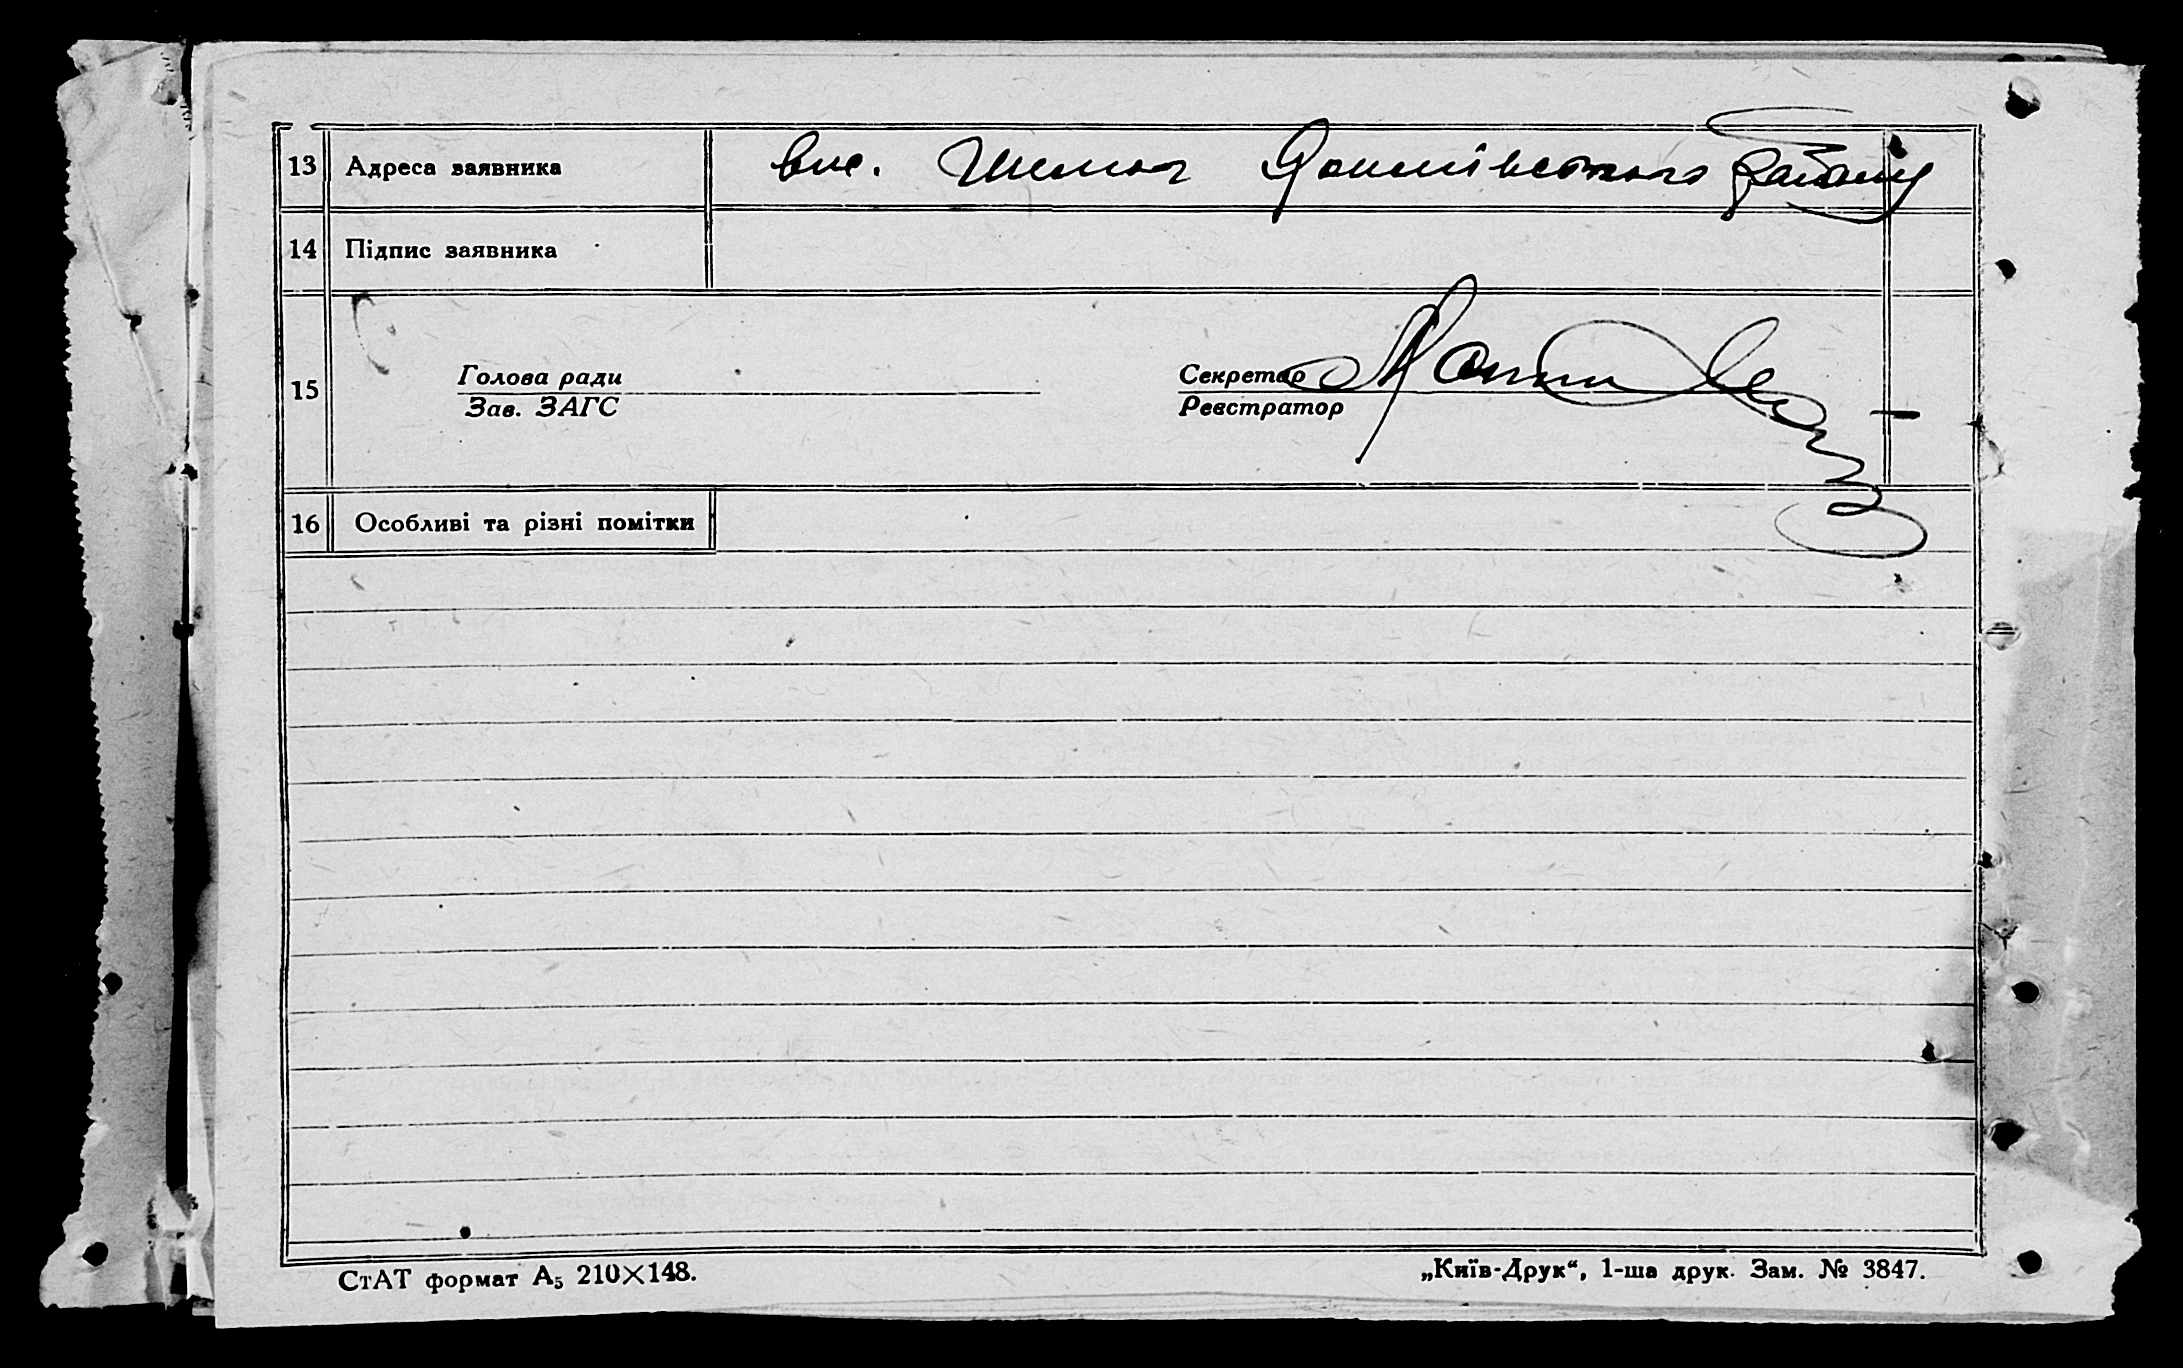 13 Адреса заявника вул.
14 Підпис заявника
15 Голова ради Секретар
Зав. ЗАГС Реєстратор
16 Особливі та різні помітки
СтАТ формат А₅ 210×148. „Київ-Друк“, 1-ша друк. Зам. № 3847.